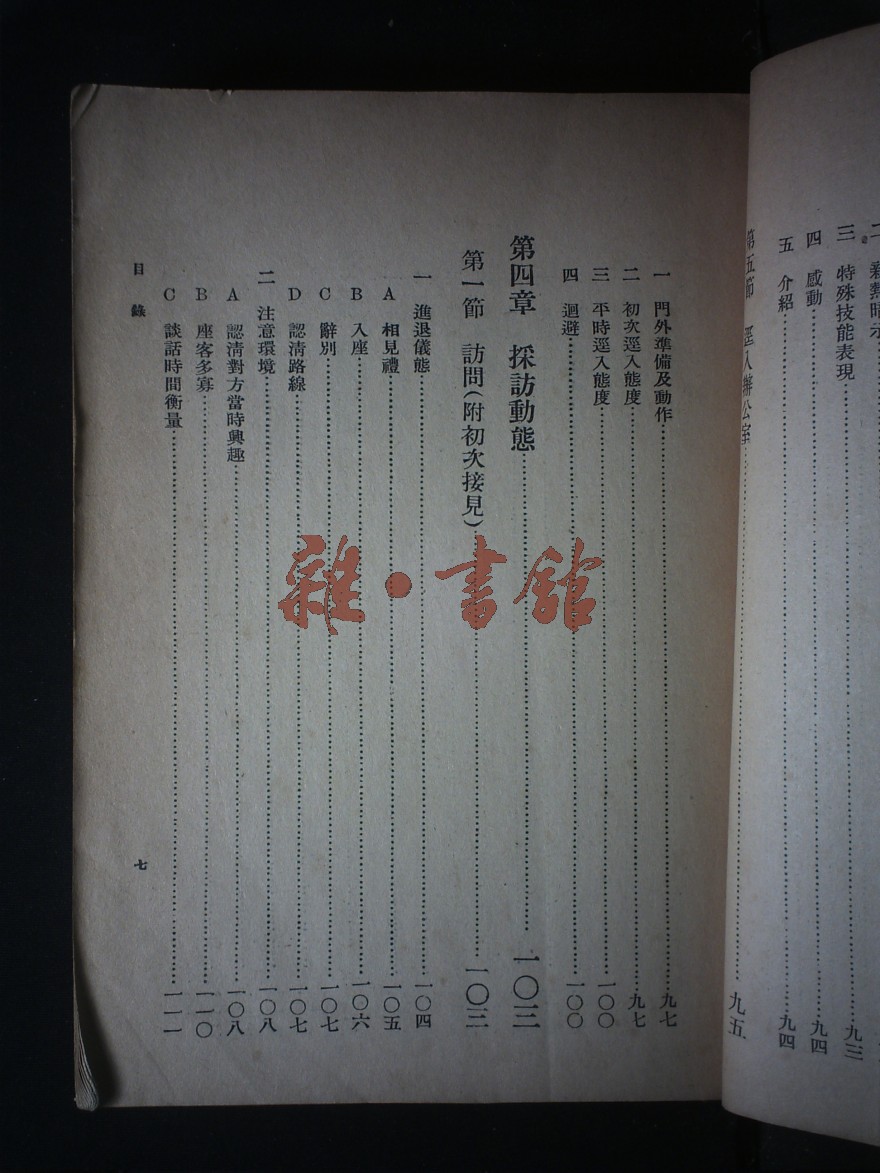 三　特殊技能表現……九三
四　感動……九四
五　介紹……九四
第五節　逕入辦公室……九五
一　門外準備及動作……九七
二　初次逕入態度……九七
三　平時逕入態度……一〇〇
四　迴避……一〇〇
第四章　採訪動態……一〇三
第一節　訪問（附初次接見）……一〇三
一　進退儀態……一〇四
A　相見禮……一〇五
B　入座……一〇六
C　辭別……一〇七
D　認清路線……一〇七
二　注意環境……一〇八
A　認清對方當時興趣……一〇八
B　座客多寡……一一〇
C　談話時間衡量……一一一
目錄
七
雜・書館